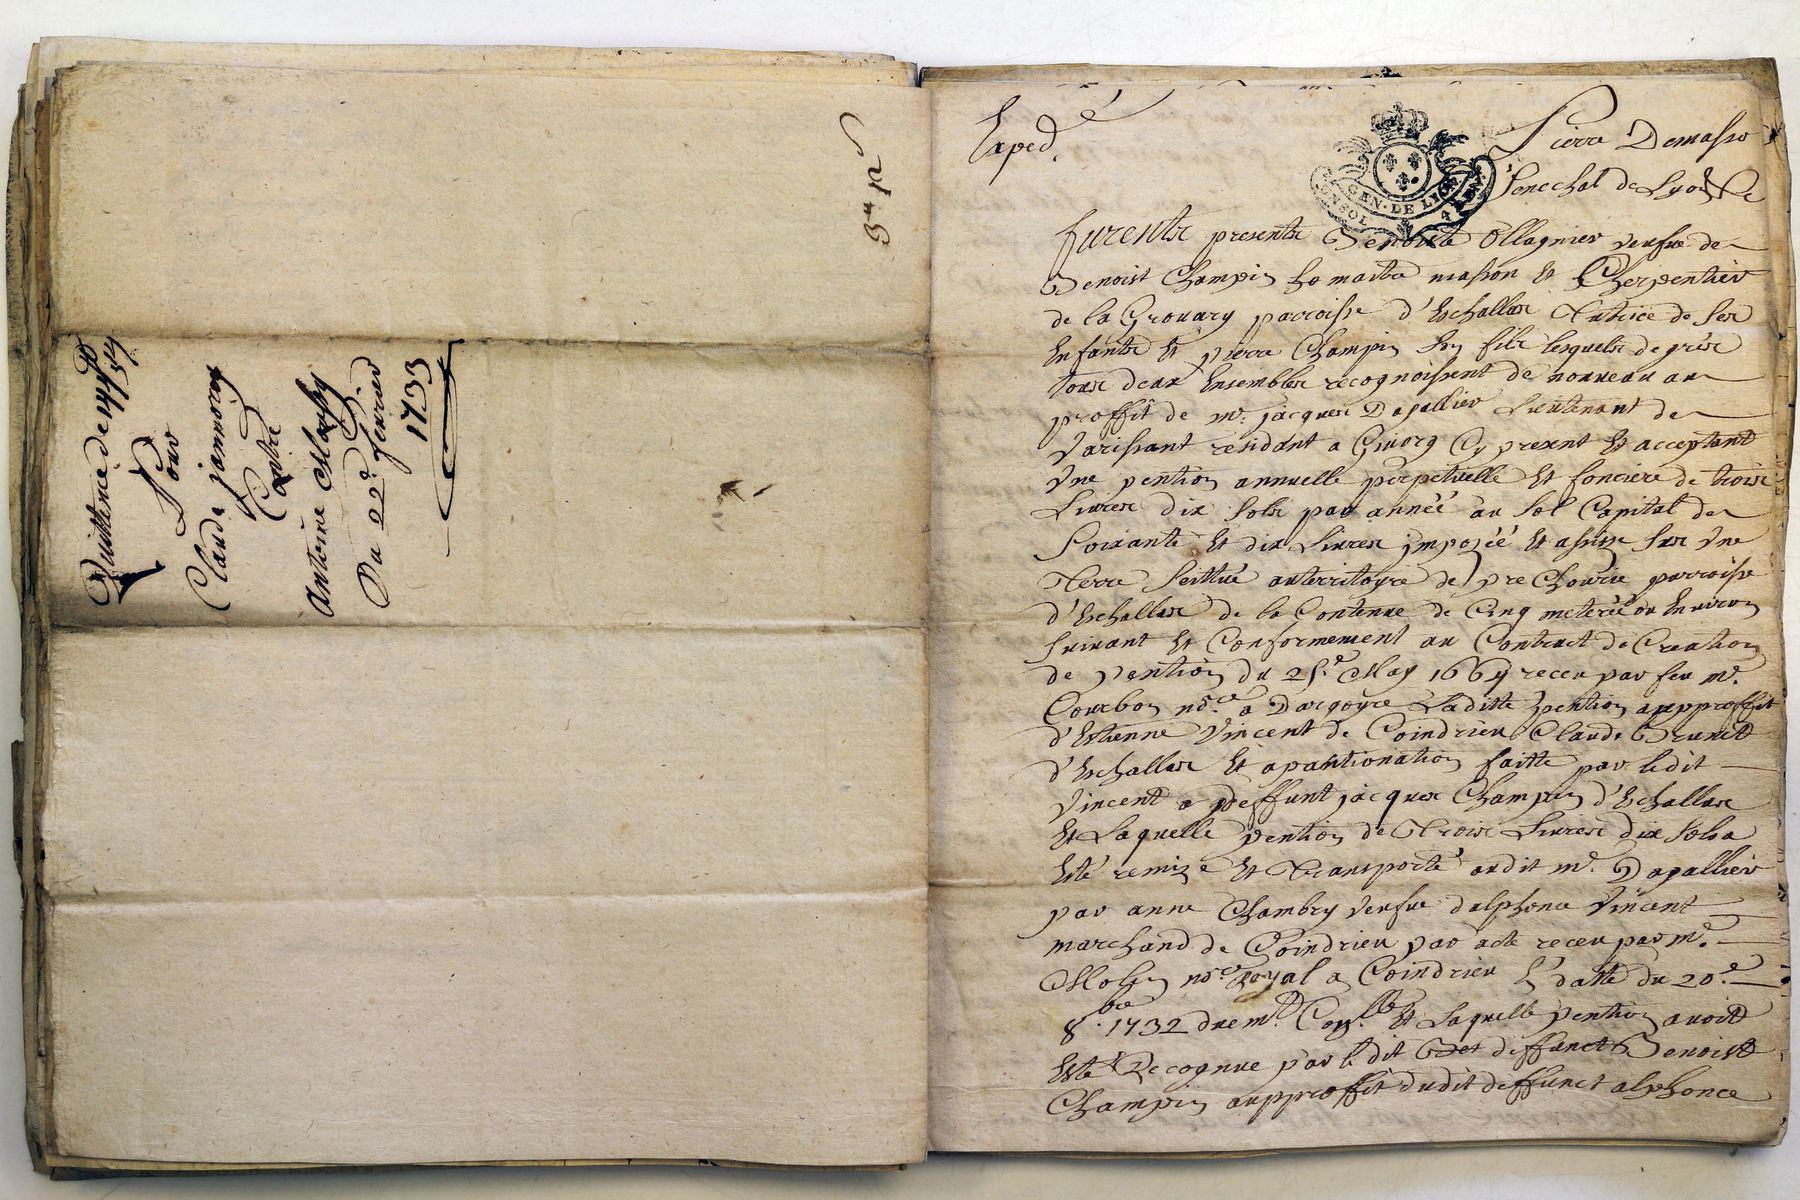 Quittence de 144ᵗᵗ 5ˢ
Pour
Claude jammoing
Contre
Antoine Marthy
Du 22ᵉ fevrier
1733
Exped.é
GEN·DE LYON
Pierre Demasso
Senechal de Lyon
furents presents Benoite Ollagnier veufve de
Benoist Champin ho maitre masson Et Cherpentier
de la Grouary parroisse d'Eschallas Tutrice de ses
Enfants Et pierre Champin son fils lesquels de grés
tous deux Ensembles recognoissent de nouveau au
proffit de mᵉ jacques Dapallier Lieutenant de
Varissant residant a Givorg Cy present Et acceptant
Une pention annuelle perpetuelle Et fonciere de trois
Livres dix sols par année au sol Capital de
Soixante Et dix Livres imposéé Et assize sur Une
Terre scittué au territoyre de pre Chourie parroisse
d'Eschallas de la Contenue de Cinq meteréé ou Environ
suivant Et Conformement au Contract de Creation
de pention du 25ᵉ May 1664 receu par feu mᵉ
Courbon noʳᵉ a Dargoyre Laditte pention au pproffit
d'Estienne Vincent de Coindrieu Claude Brunet
d'Eschallas Et apantionation faitte par ledit
Vincent a deffunt jacques Champin d'Echallas
Et Laquelle pention de Trois Livres dix sols a
Esté remize Et Transporté audit mᵉ Dapallier
par anne Chambry veufve d'alphonce Vincent
marchand de Coindrieu par acte receu par mᵉ
Molin noʳᵉ royal a Coindrieu En datte du 20ᵉ
8ᵇʳᵉ 1732 duemᵗ Conˡˡᵉ Et Laquelle pention avoit
Esté Recognue par ledit deffunct Benoist
Champin au pproffit dudit deffunct alphonce